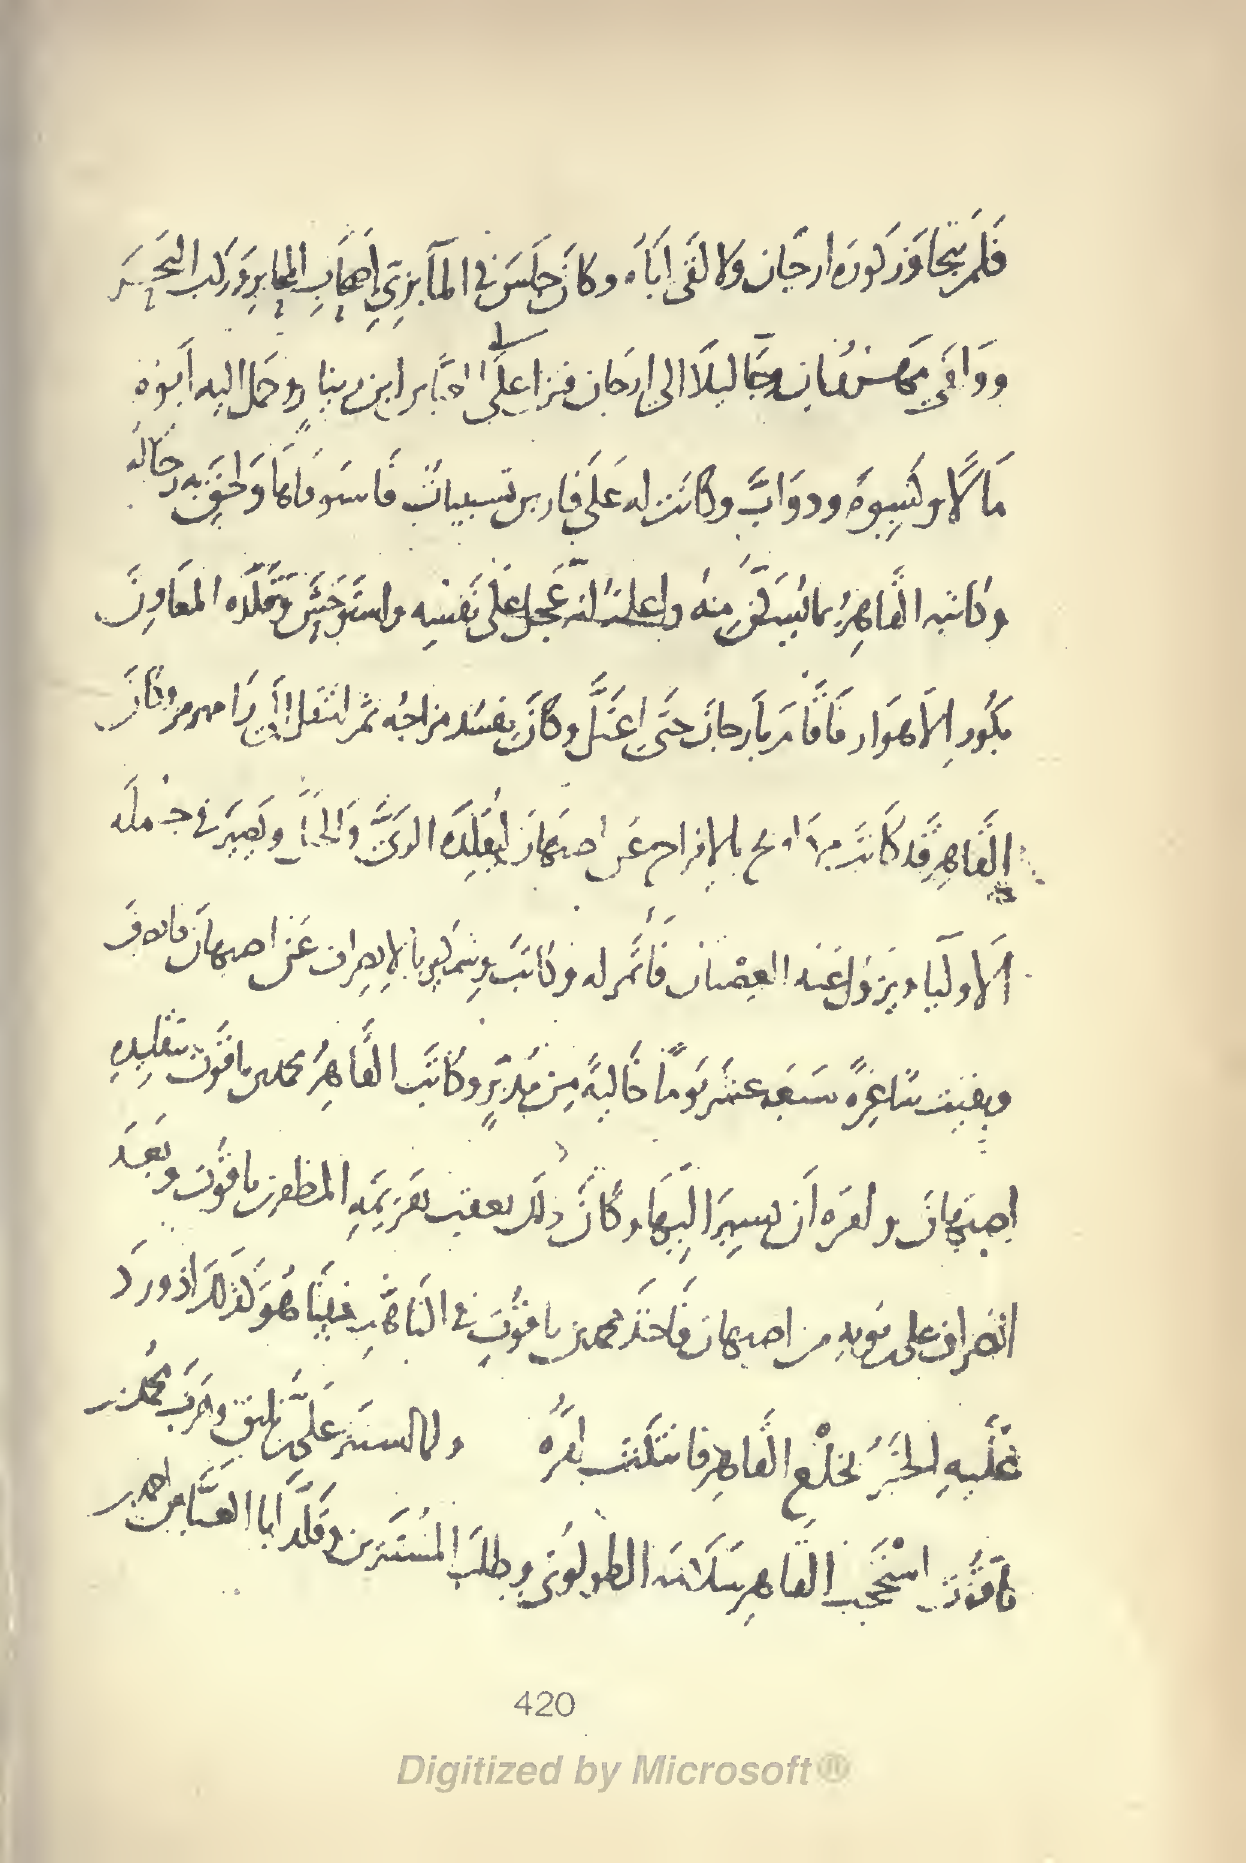 فلم يتجاوز كورة ارجان ولا لقى اباه وكان جلس في المآبزي اصحاب المعابر وركب البحر
ووافى مهروبان وجا ليلا الى ارجان فنزل على ابن دينار وحمل اليه ابوه
مالا وكسوة ودواب وكانت له على فارس تسبيبات فاستوفاها ولحق به رجاله
وكاتبه القاهر بما يسكن منه واعلمه انه عجل على نفسه واستوحش وقلده المعاون
بكور الاهواز فاقام بارجان حتى اعتل وكان يفسد مزاجه ثم انتقل الى رامهرمز وكان
القاهر قد كاتب مرداويج بالافراج عن اصبهان ليقلده الري والجبال ويصير في جملة
الاولياء ويزول عنه العصيان فاتمر له وكاتب وشمكير بالانصراف عن اصبهان فانصرف
وبقيت شاغرة سبعة عشر يوما خالية من مدبر وكاتب القاهر محمد بن ياقوت بتقليده
اصبهان وامره ان يسير اليها وكان ذلك بعقب تعزيته المظفر بن ياقوت وبعد
انصراف على نوبه من اصبهان فاخذ محمد بن ياقوت في التاهب فبينا هو كذلك اذ ورد
عليه الخبر بخلع القاهر فانتكث امره ولما استتر على بن يلبق وهرب محمد بن
ياقوت استحجب القاهر سلامة الطولوني وطلب المستترين وقلد ابا العباس احمد بن
420
Digitized by Microsoft®